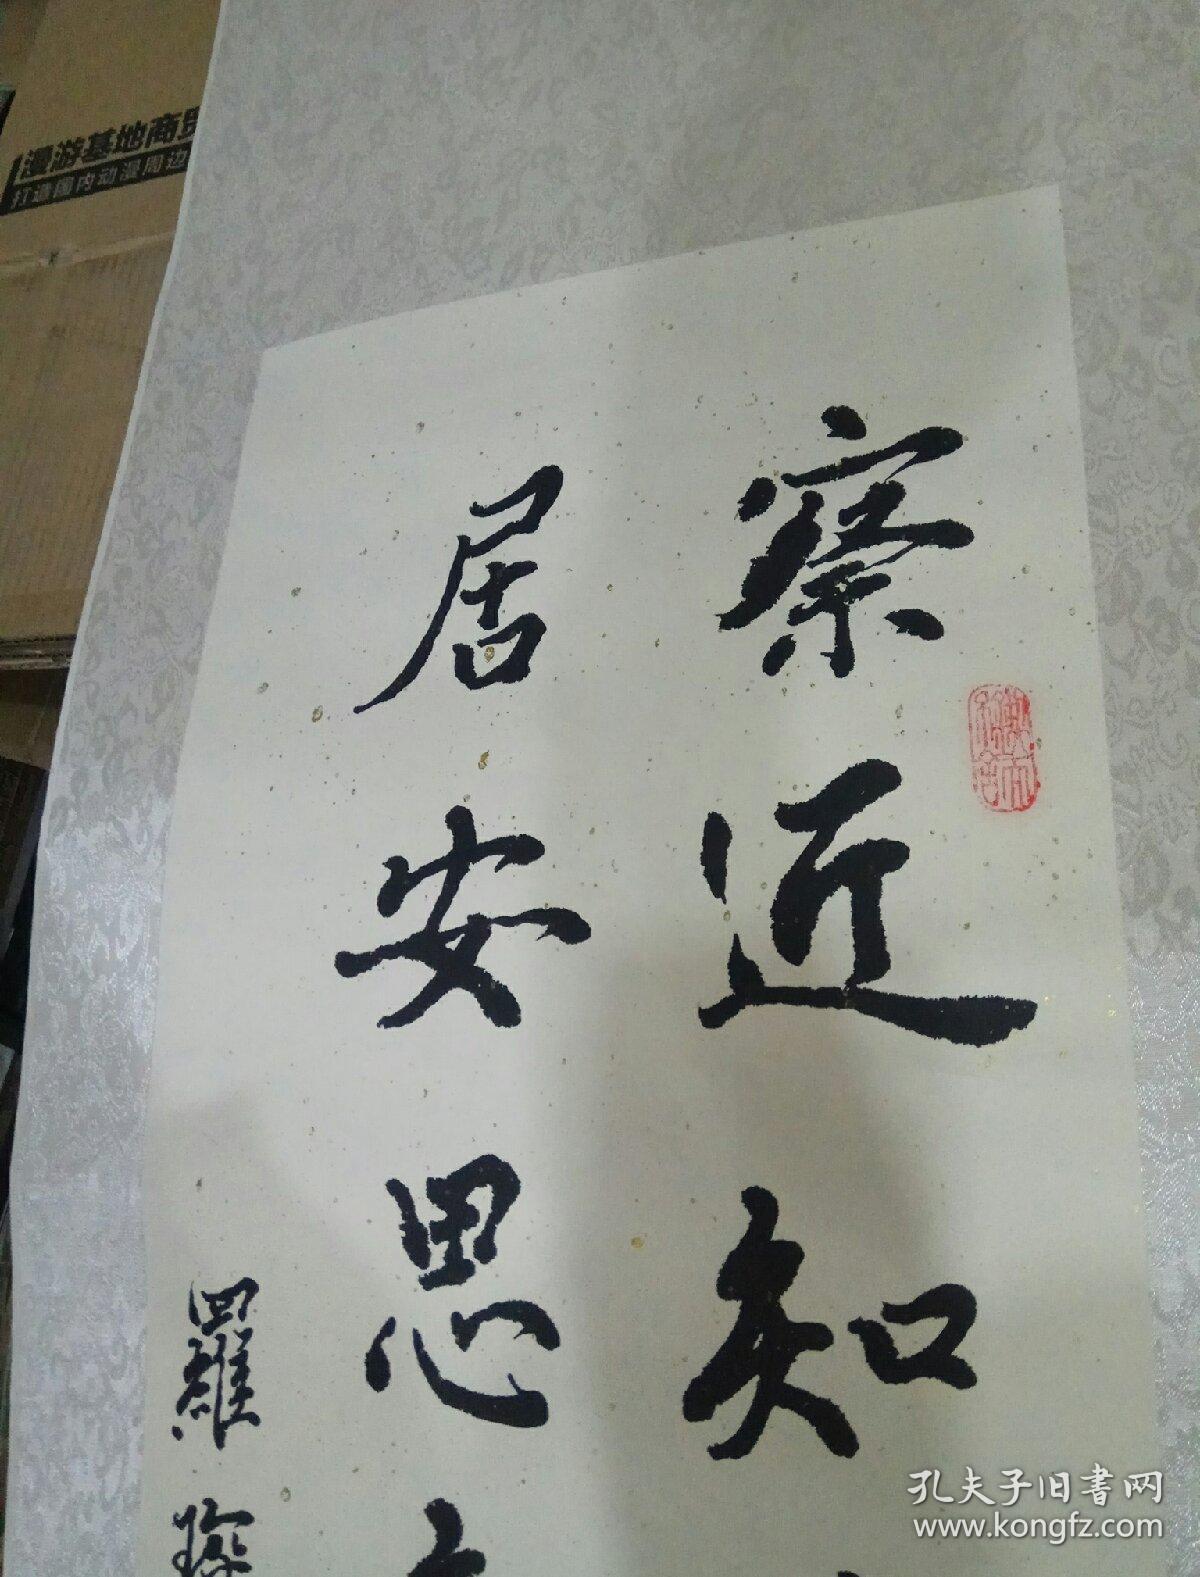 察近知
居安思
羅
漫游基地商贸
打造国内动漫周边
孔夫子旧书网
www.kongfz.com